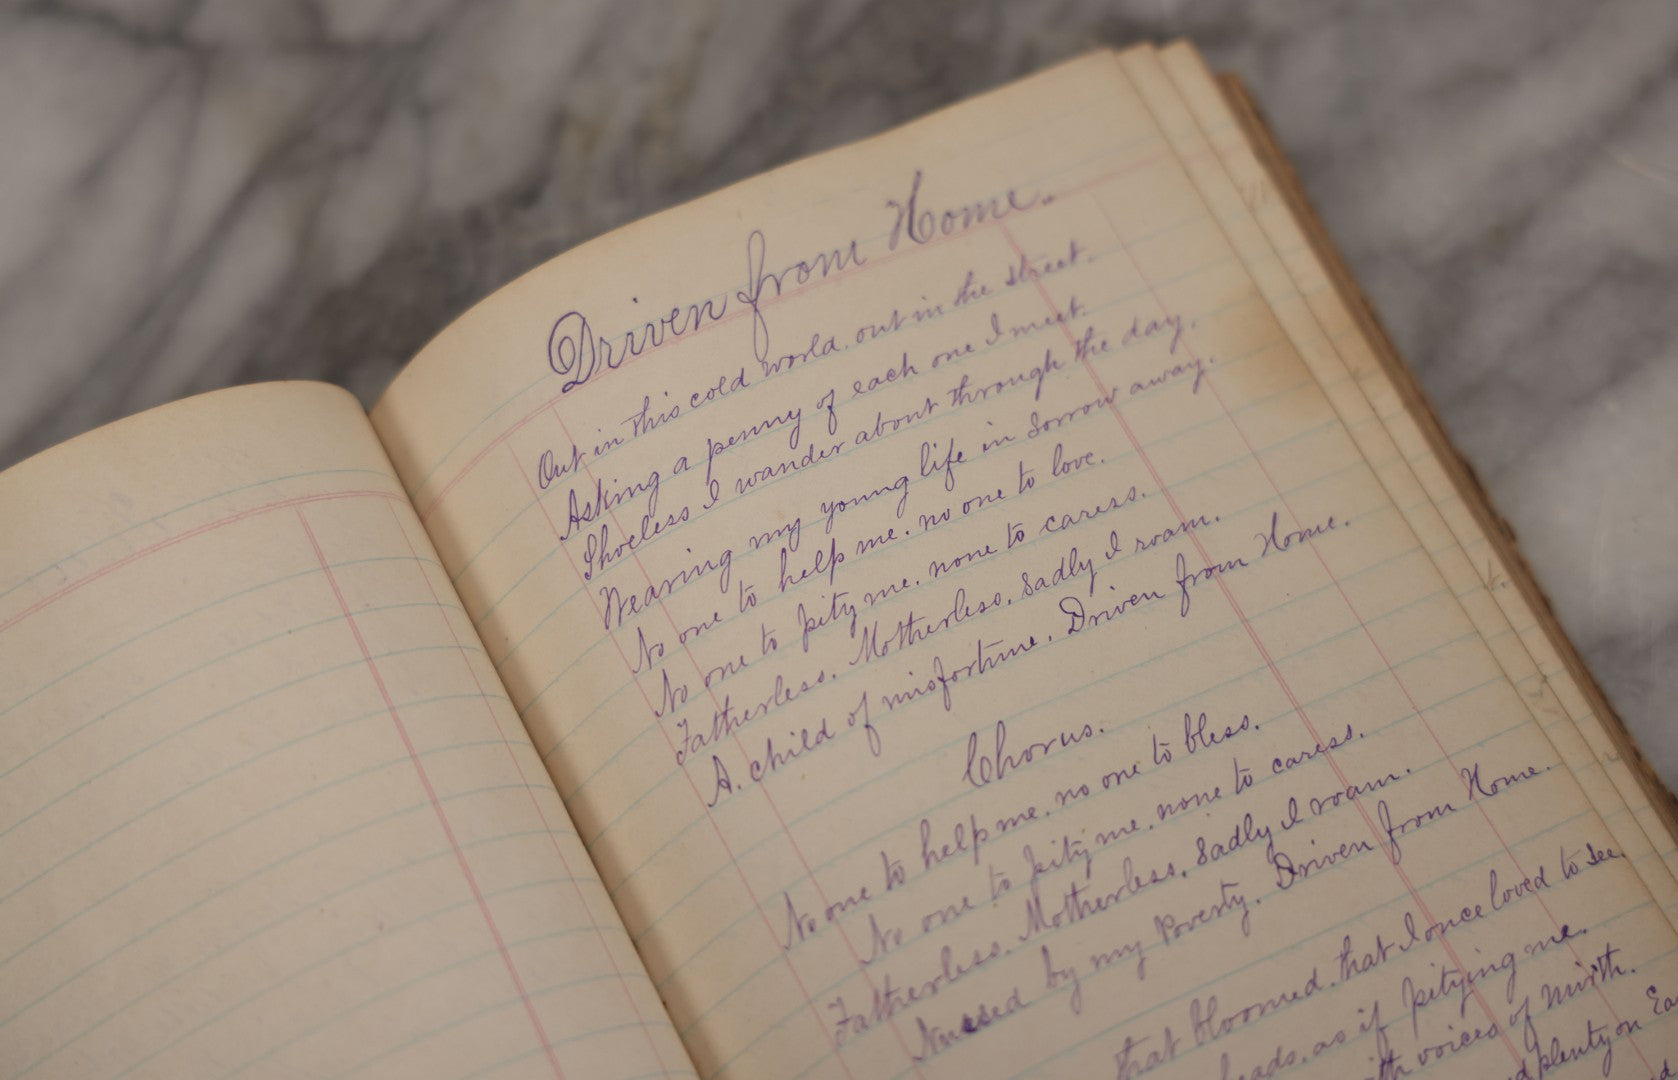 Driven from Home.
Out in this cold world. out in the street.
Asking a penny of each one I meet.
Shoeless I wander about through the day.
Wearing my young life in Sorrow away.
No one to help me. no one to love.
No one to pity me. none to caress.
Fatherless. Motherless. Sadly I roam.
A. child of misfortune. Driven from Home.
Chorus.
No one to help me. no one to bless.
No one to pity me. none to caress.
Fatherless. Motherless. Sadly I roam.
Nursed by my Poverty. Driven from Home.
that bloomed. that I once loved to see.
heads. as if pitying me.
voices of mirth.
plenty on